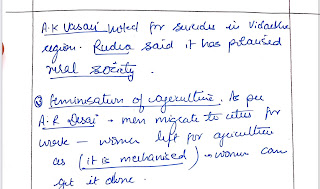 A.K Vasavi noted for suicides in Vidarbha
region. Rudra said it has polarised
rural society.
③ feminisation of agriculture. As per
A.R Desai → men migrate to cities for
work — women left for agriculture
as (it is mechanised) → women can
get it done.